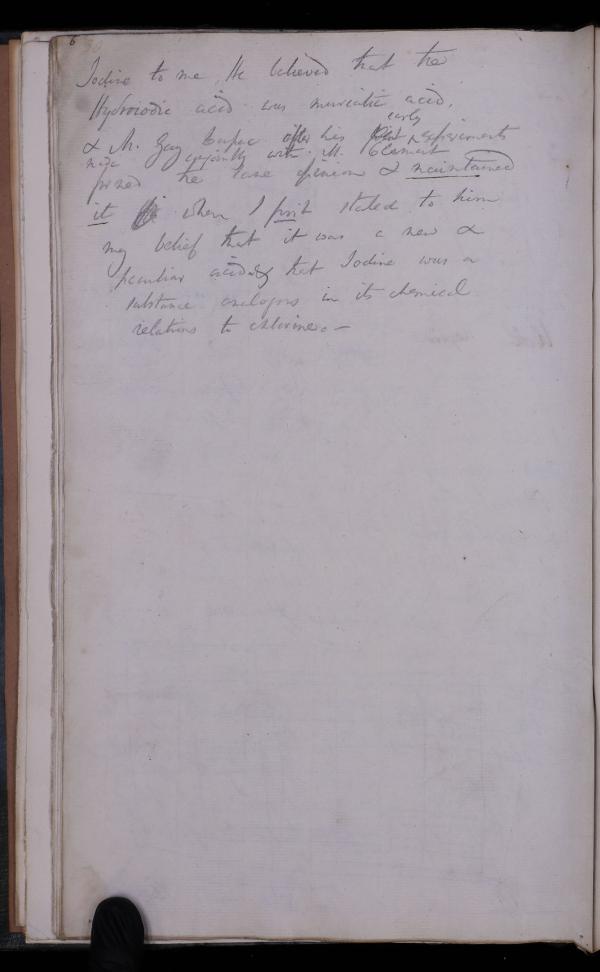 6
Iodine to me. He believed that the
Hydroiodic acid was muriatic acid,
early
& M. Gay Lussac after his first experiments
made conjointly with M. Clement
formed the same opinion & maintained
it when I first stated to him
my belief that it was a new &
peculiar acid & that Iodine was a
substance analogous in its chemical
relations to chlorine. –